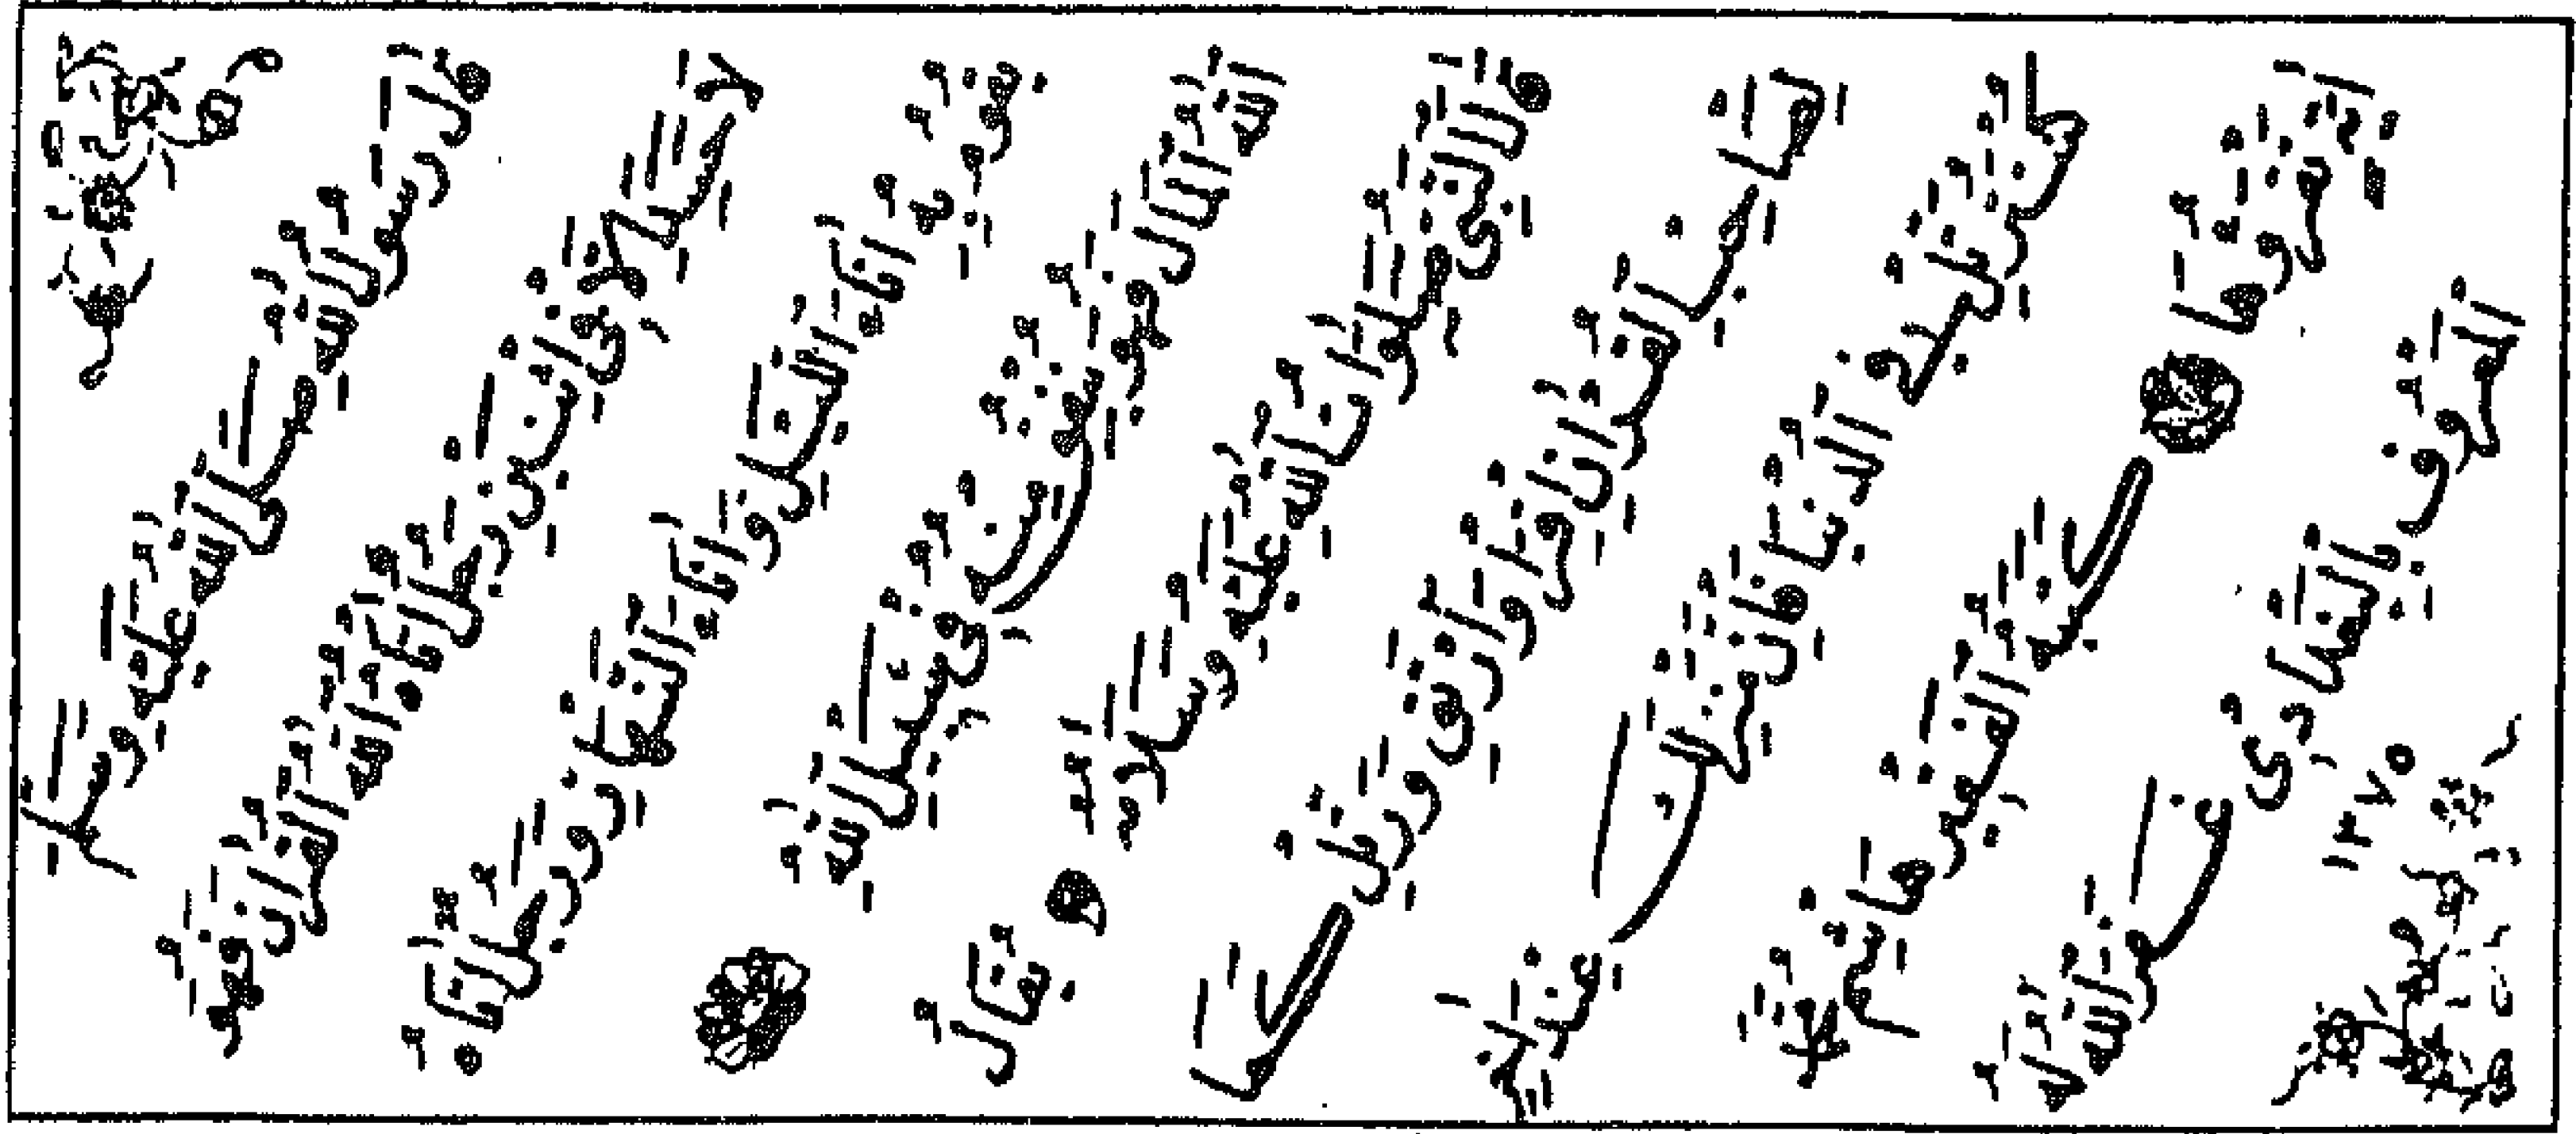 قال رسول الله صلى الله عليه وسلم
لا حسد إلا في اثنين رجل آتاه الله القرآن فهو
يقوم به آناء الليل وآناء النهار ورجل آتاه
الله المال فهو ينفقه في سبيل الله
قال النبي صلوات الله عليه وسلامه يقال
لصاحب القرآن اقرأ وارق ورتل كما
كنت ترتل في الدنيا فإن منزلتك عند آخر
آية تقرؤها كتبه الفقير هاشم محمد
المعروف بالبغدادي غفر الله له ١٣٧٥